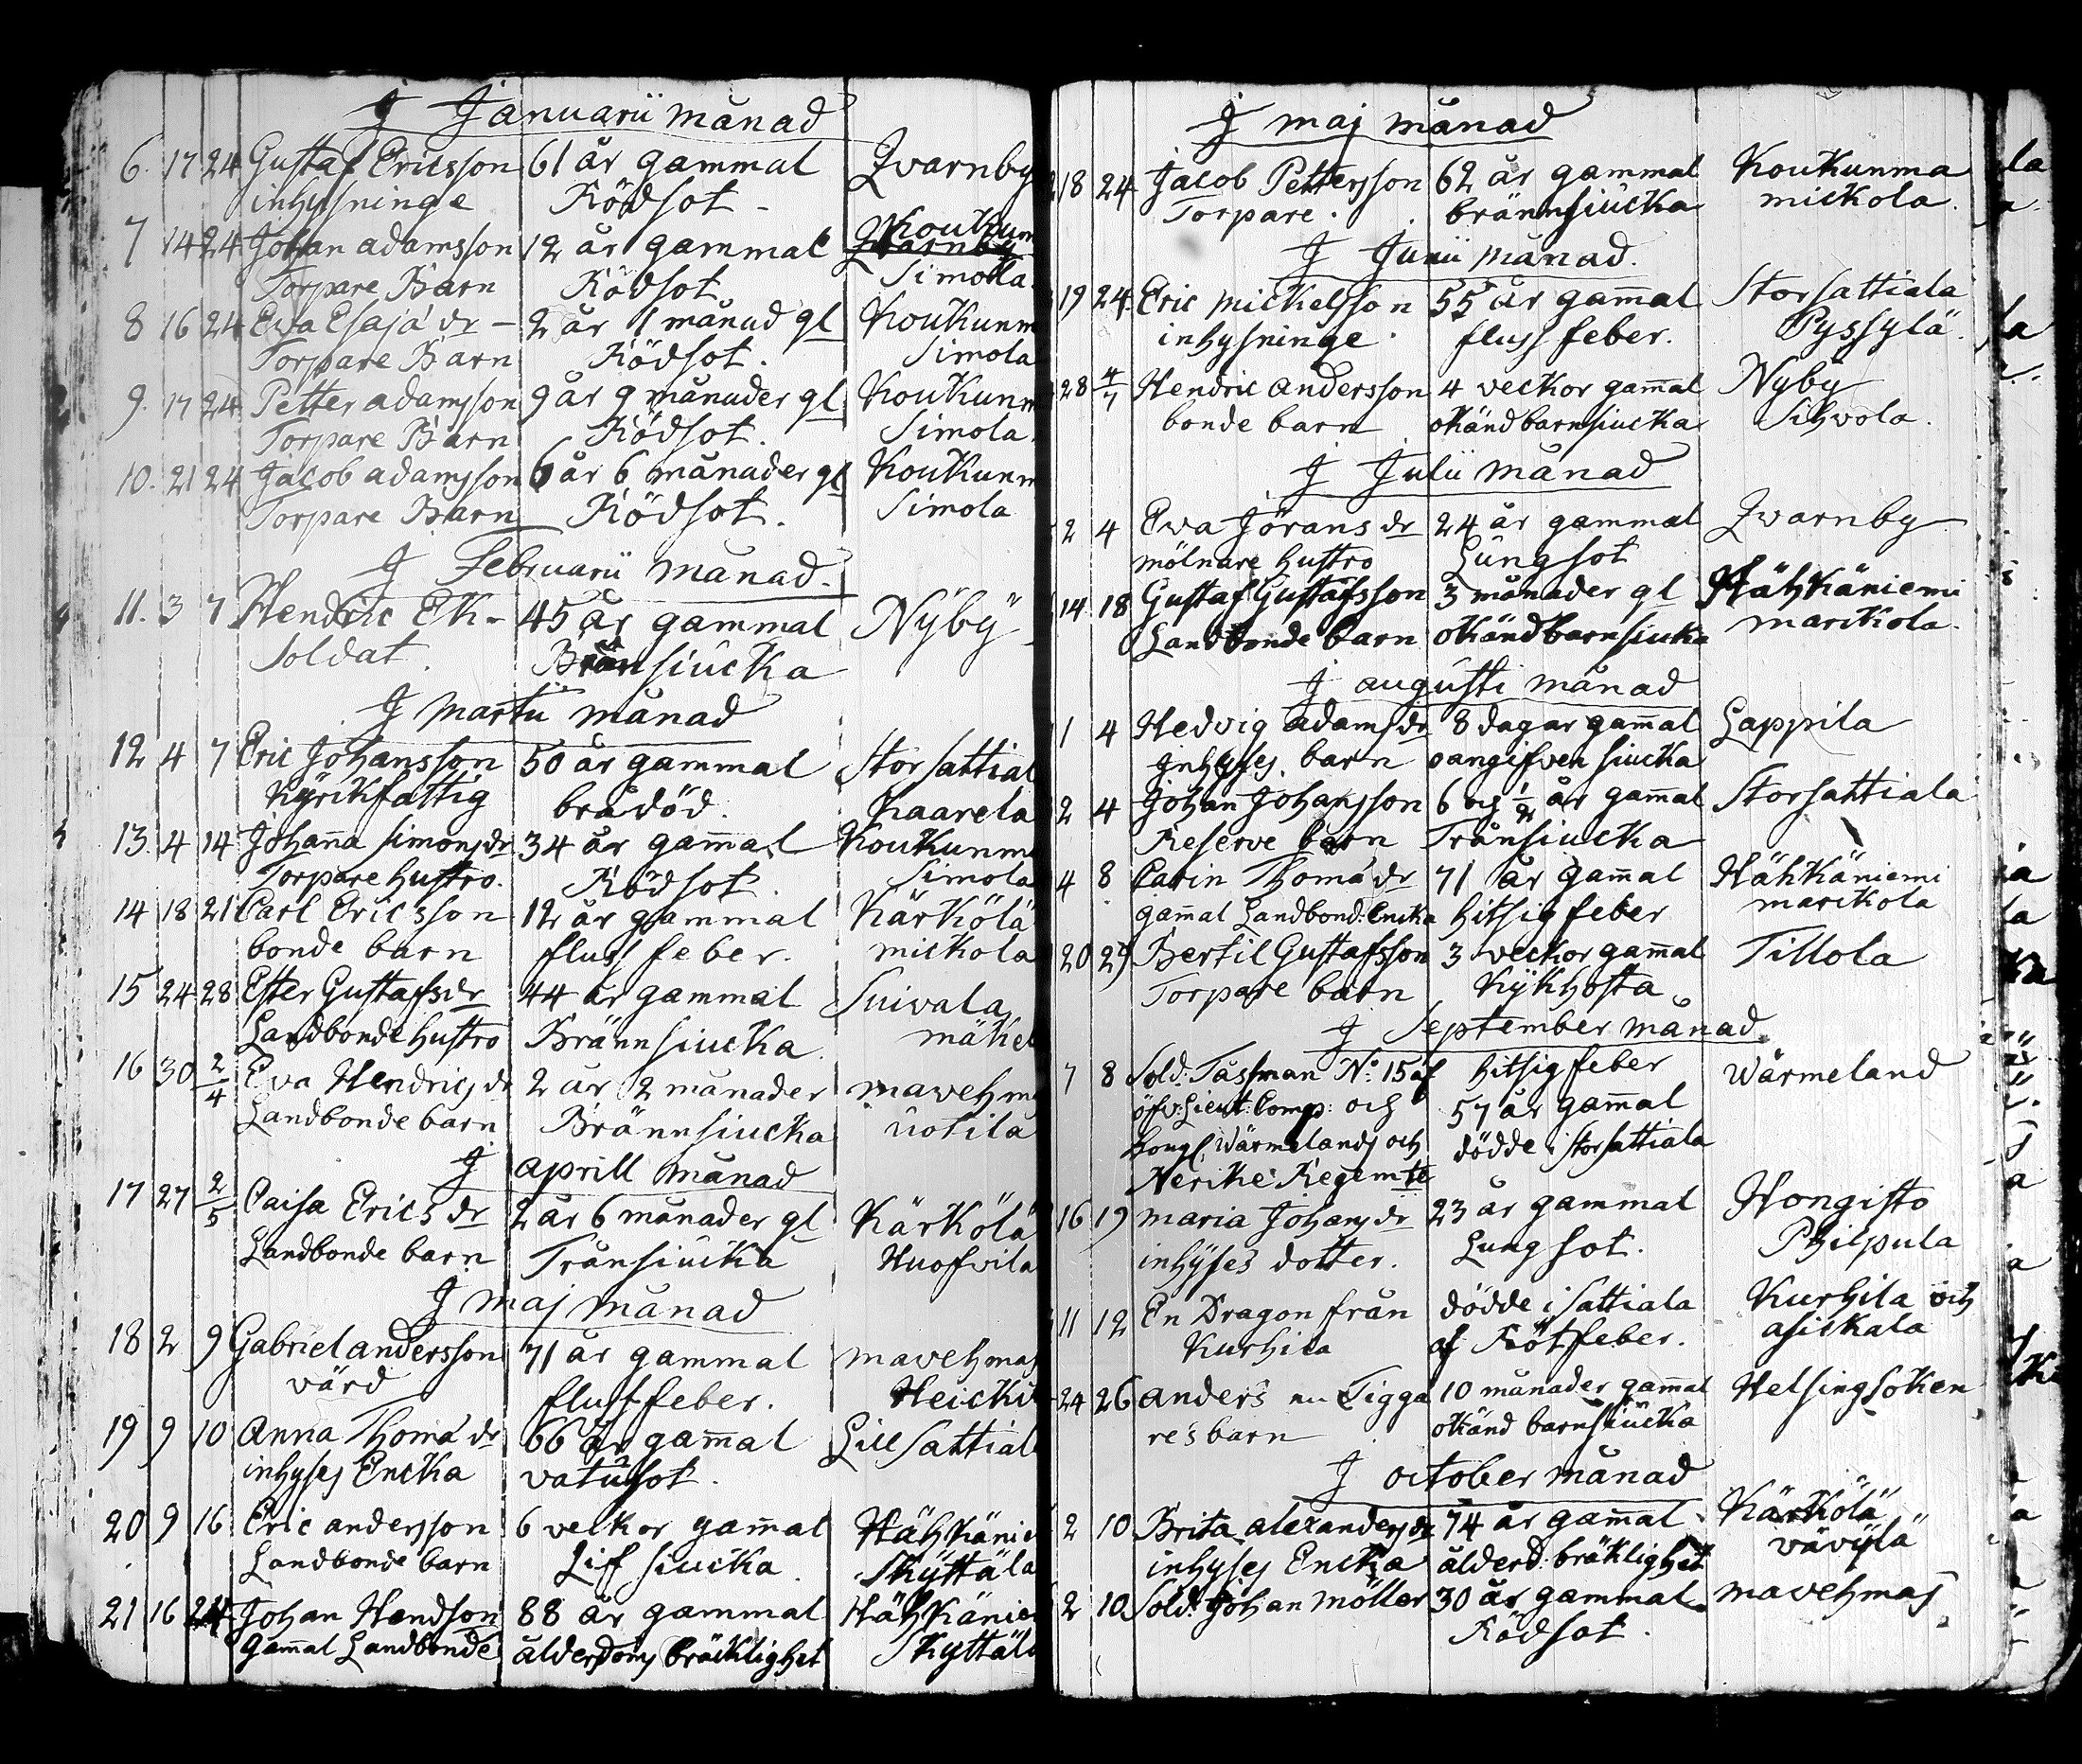 J Januarii månad
6. 17 24 Gustaf Ericsson 61 år gammal Qvarnby
inhysninge Rödsot -
7 14 24 Johan adamsson 12 år gammal Koukun
Torpare Barn Rödsot Simola
8 16 24 Eva Esaja dr - 2 år 1 månad gl Koukunm
Torpare Barn Rödsot. Simola
9. 17 24 Petter adamsson 9 år 9 månader gl Koukunm
Torpare Barn Rödsot. Simola
10. 21 24 Jacob adamsson 6 år 6 månader gl Koukunm
Torpare Barn Rödsot. Simola
J Februarii månad.
11. 3 7 Hendric Ek - 45 år gammal Nyby
Soldat. Bränsiucka
J martii månad
12 4 7 Eric Johansson 50 år gammal Storsattial
Kyrkfattig brådöd. Kaarela
13. 4 14 Johana Simonsdr 34 år gamal Koukunma
Torpare hustro. Rödsot. Simola
14 18 21 Carl Ericsson 12 år gammal Kärkölä
bonde barn fluss feber. mickola
15 24 28 Ester Gustafsdr 44 år gammal Suivala
Landbonde hustro Brännsiucka. mäkel
16 30 2/4 Eva Hendricsdr 2 år 2 månader mavehm
Landbonde barn Brännsiucka uotila
J aprill månad
17 27 2/5 Caisa Erics dr 2 år 6 månader gl Kärkölä
Landbonde barn Trånsiucka Huofvila
J maj månad
18 2 9 Gabriel andersson 71 år gammal mavehmas
värd flussfeber. Heicki
19 9 10 Anna Thoma dr 66 år gamal Lill Sattial
inhyses Encka vatusot.
20 9 16 Eric andersson 6 veckor gamal Hähkänie
Landbonde barn Liff siucka. Skyttälä
21 16 24 Johan Hendson 88 år gammal Hähkänie
Gamal Landbonde ålderdoms bräcklighet Skyttälä
J maj månad
18 24 Jacob Pettersson 62 år gammal Koukunma
Torpare. brännsiucka mickola.
J Junii månad.
19 24. Eric mickelsson 55 år gamal Storsattiala
inhysninge. fluss feber. Pyssylä.
28 4/7 Hendric andersson 4 veckor gamal Nyby
bonde barn okänd barnsiucka Sihvola.
J Julii månad
2 4 Eva Jörans dr 24 år gammal Qvarnby
mölnare hustro Lungsot
14 18 Gustaf Gustafsson 3 månader gl Hähkäniemi
Landbonde barn okänd barnsiucka marckola.
J augusti månad
1 4 Hedvig adamsdr 8 dagar gamal Lappila
Jnhyses barn oangifven siucka
2 4 Johan Johansson 6 och 1/2 år gamal Storsattiala
Reserve barn Trånsiucka
4 8 Carin Thoma dr 71 år gamal Hähkäniemi
gamal Landbond: Encka hitsig feber marckola
20 29 Bertil Gustafsson 3 veckor gamal Tillola
Torpare barn Kykhosta
J September månad
7 8 Sold: Tassman No: 15 af hitsig feber Wärmeland
öfv: Lieut: Comp: och 57 år gamal
Kongl: Wärmelands och dödde i Storsattiala
Nerike Regemte
16 19 maria Johansdr 23 år gammal Hongisto
inhyses dotter. Lungsot. Philpula
11 12 En Dragon från dödde i Sattiala Kurhila och
Kurhila af Rötfeber. asickala
24 26 anders nu Tigga 10 månader gamal Helsing Soken
re's barn okänd barnsiucka
J october månad
2 10 Brita alexandersdr 74 år gamal Kärkölä
inhyses Encka ålderd: bräklighet vävylä
2 10 Sold: Johan möller 30 år gammal. mavehmas
Rödsot.